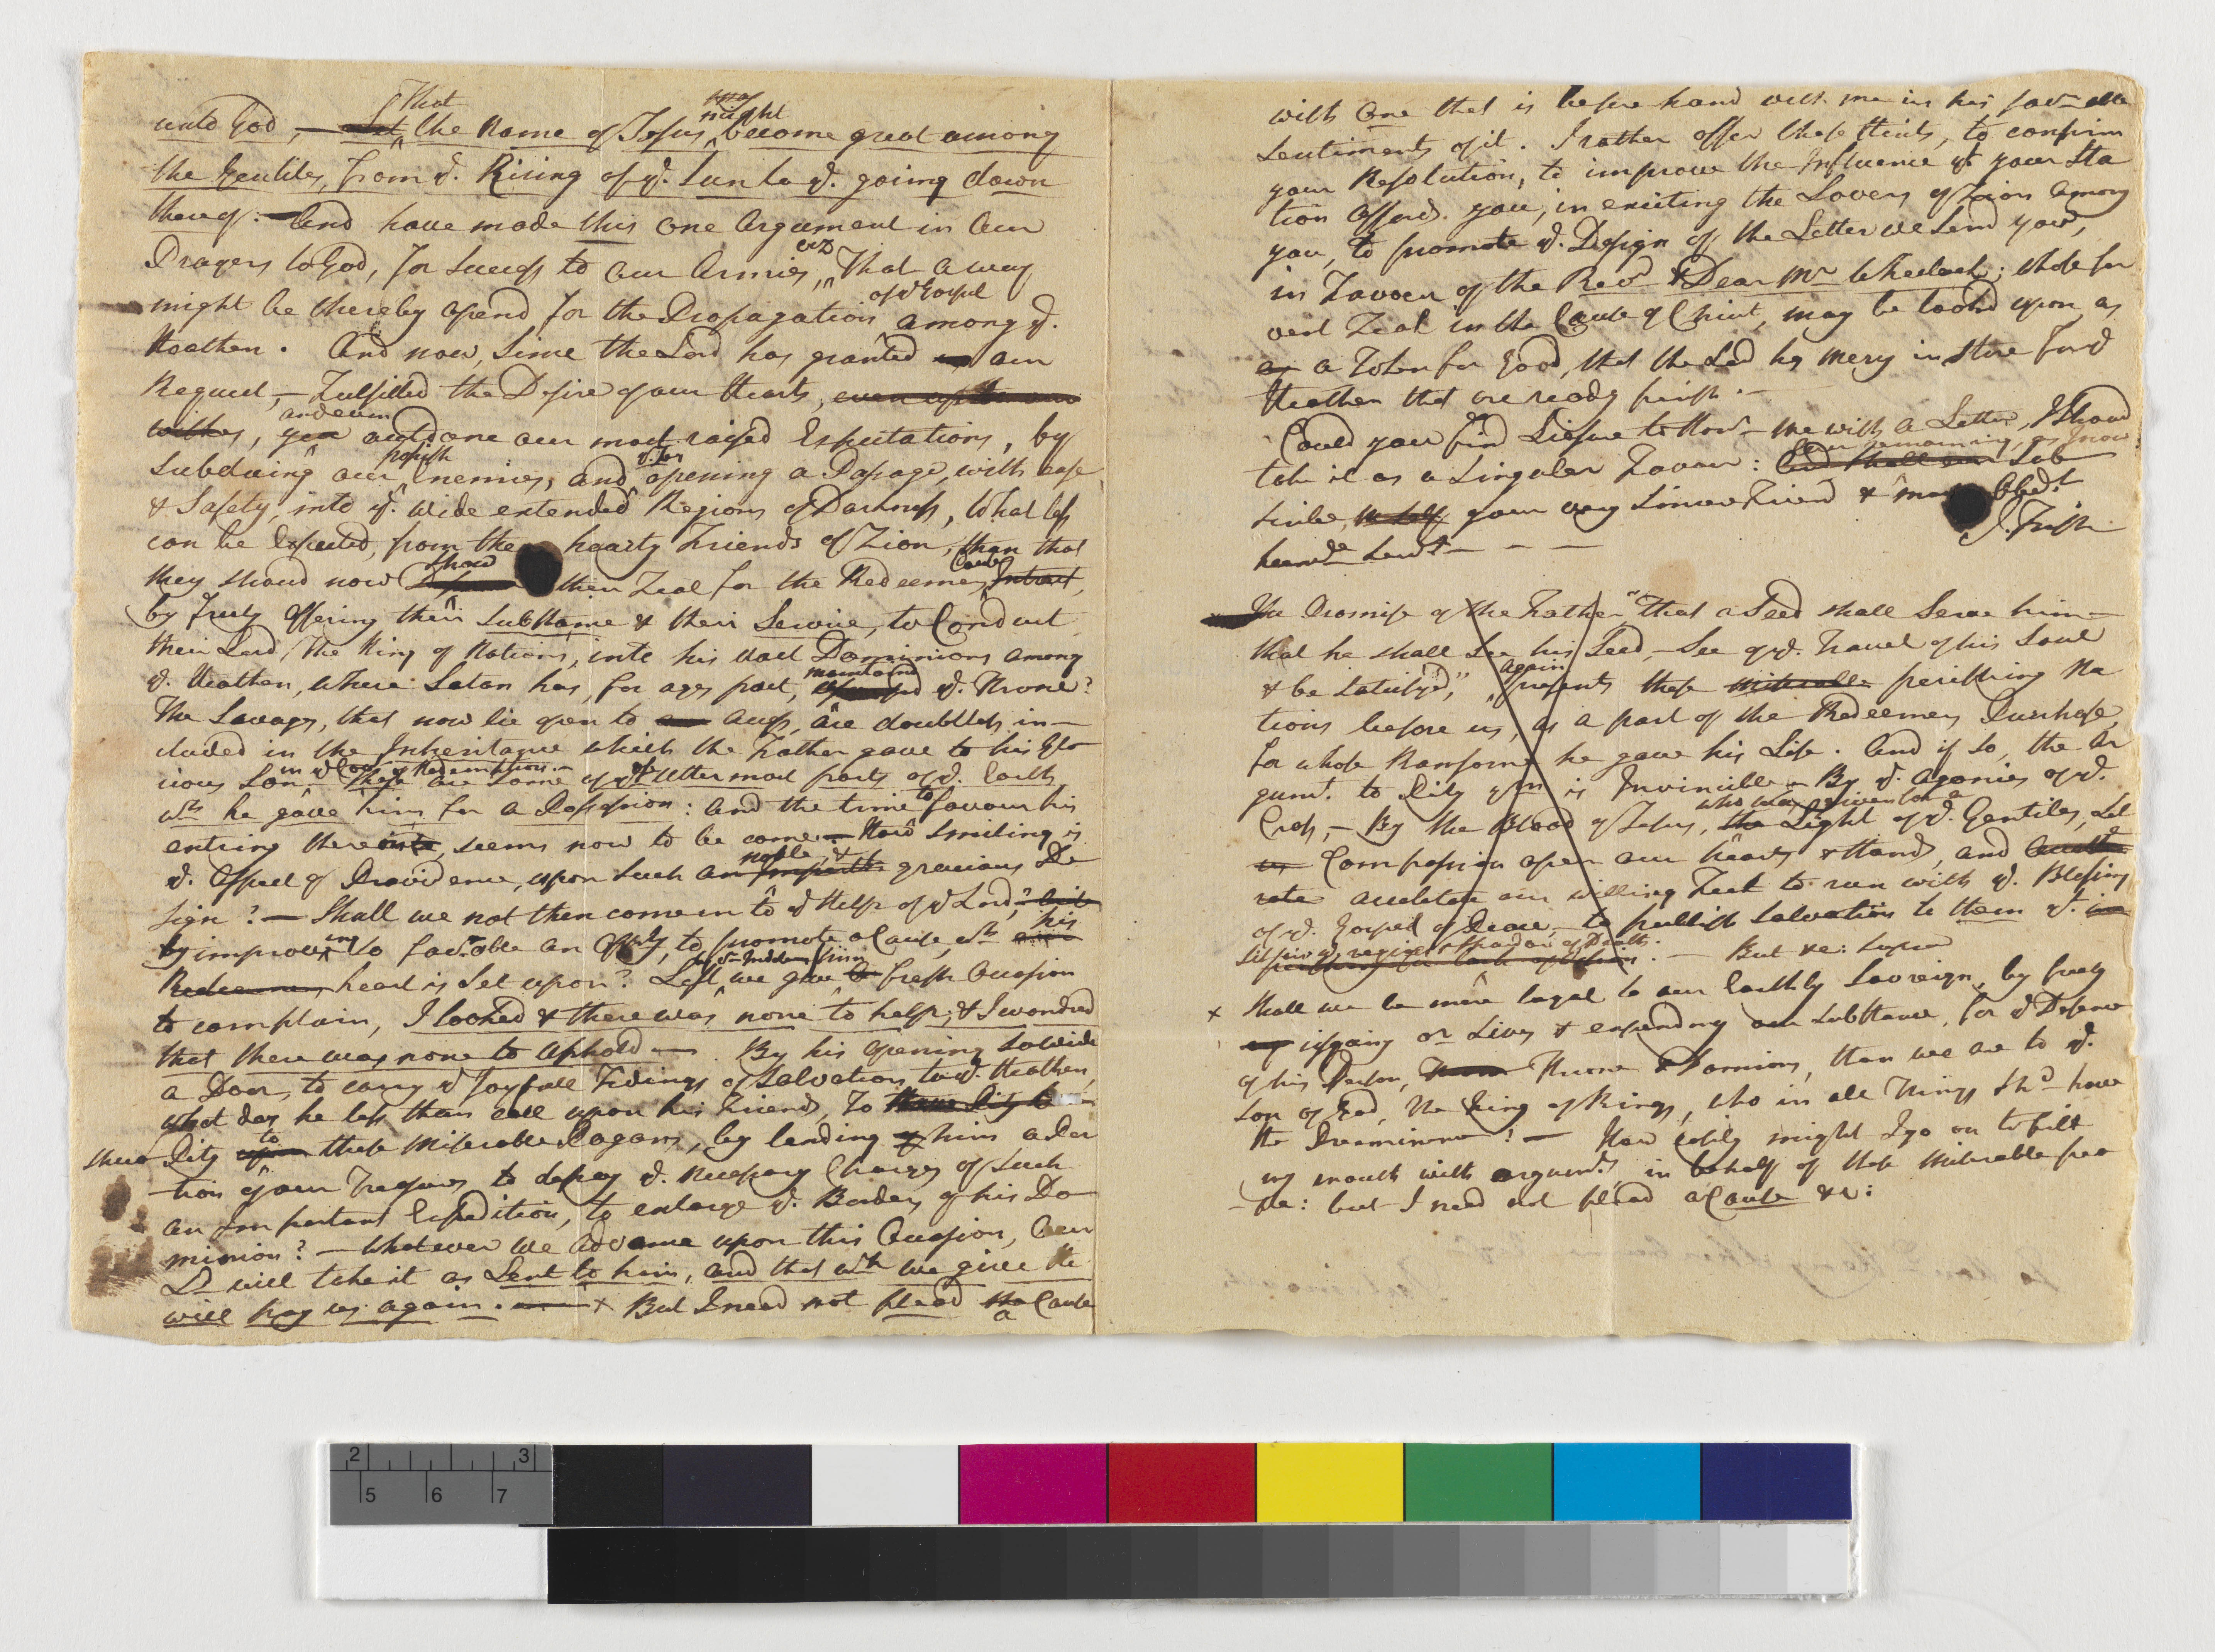 That might
unto God, — Let the Name of Jesus become great among
the Gentiles, from ye. Rising of ye. Sun to ye. going down
thereof: — And have made this one Argument in our
Prayers to God, for Success to our Armies, viz That a way
might be thereby opend for the Propagation of ye Gospel among ye.
Heathen. And now, since the Lord has granted our
Request, — Fulfilled the Desire of our Hearts, even
wishes, yea and even outdone our most raised Expectations, by
Subduing our popish Enemies, and opening a Passage, with ease
& Safety, into ye. wide extended Regions of Darkness, What less
can be Expected, from the hearty Friends of Zion, than that
they shoud now show their Zeal for the Redeemers Cause Intrest,
by freely Offering their Substance & their Service, to Conduct
their Lord, The King of Nations, into his vast Dominions among
ye. Heathen, where Satan has, for ages past, maintaind ye. Throne?
The Savages, that now lie open to our Access, are doubtless in-
cluded in the Inheritance which the Father gave to his Glo
rious Son in ye Cov. of Redemption — these are some of ye uttermost parts of ye. Earth
wch he gave him for a Possession: and the time to favour his
entring there into, seems now to be come. — How Smiling is
ye. Aspect of Providence, upon such an noble & gracious De
sign? — Shall we not then come in to ye Help of ye Lord,
by improving so favorable an Oppty, to promote a Cause, wch his
Redeemers heart is Set upon? Lest we give him fresh Occasion
to complain, I looked & there was none to help; & I wondred
that there was none to uphold —. By his opening so wide
a Door, to carry ye Joyfull Tidings of Salvation to ye. Heathen,
what does he less than call upon his Friends, To have Pity
shew Pity upon to these Miserable Pagans, by lending him a Por
tion of your Treasures to defray ye. necessary Charges of such
an Important Expedition, to enlarge ye. Borders of his Do
minion? — Whatever we advance upon this Occasion, our
Ld will take it as Lent to him, and that wch we give He
will pay us again. — x But I need not plead the a Cause
with one that is before hand with me in his favorable
Sentiments of it. I rather offer these Hints, to confirm
your Resolution, to improve the Influence yt your Sta
tion affords you, in exciting the Lovers of Zion among
you, to promote ye. Design of the Letter we send you,
in Favour of the Revd & Dear Mr Wheelock; whose fer
vent Zeal in the Cause of Christ, may be lookd upon as
as a Token for Good, that the Lord has Mercy in Store for ye
Heathen that are ready perish. —
Could you find Liesure to Honr me with a Letter, I Shoud
take it as a Singular Favour: And shall remaining, as I now Sub
scribe, your very Sincere Friend & most obedt
humble Servt — — — J. Fish
The Promise of the Father, "That a Seed shall Serve him —
that he shall See his Seed, — See of ye. Travel of his Soul
& be Satisfyed," Again presents these Miserable perishing Na
tions before us, as a part of the Redeemers Purchase,
for whose Ransome he gave his Life. And if so, the Ar
gumt. to Pity ym is Invincible — By ye. Agonies of ye.
Cross, — By the Blood of Jesus, who was given for a the Light of ye. Gentiles, Let
us Compassion open our hearts & Hands, and
rate accelerate our willing Feet to run with ye. Blessing
of ye. Gospel of Peace, — to publish Salvation to them yt.
Sit in ye. region & Shadow of Death. — But &c: Supra
x Shall we be more loyal to our Earthly Sovreign, by freely
our Lives & expending our Substance, for ye Defence
of his Person, Throne & Dominions, than we are to ye.
Son of God, The King of Kings, who in all Things shd have
the Preeminence? — How easily might I go on to fill
my mouth with argumts, in behalf of these Miserable peo
-ple: but I need not plead a Cause &c: